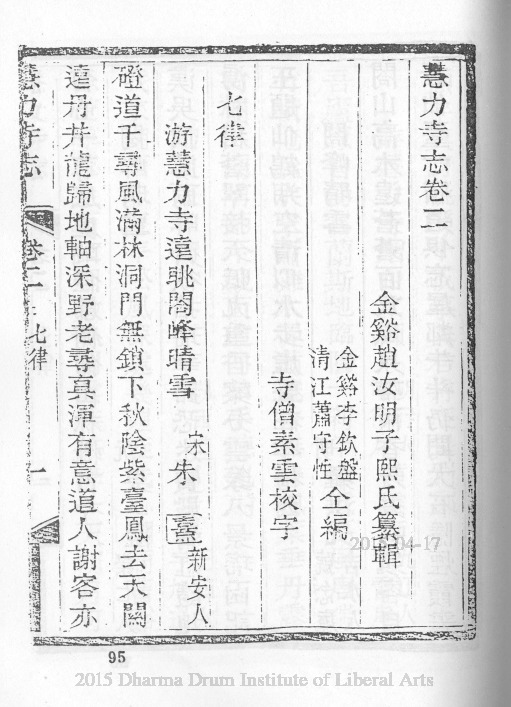 慧力寺志卷二
金谿趙汝明子熙氏纂輯
金谿李欽盤
清江蕭守性
仝編
寺僧素雲校字
七律
游慧力寺遠眺閤峰晴雪
宋朱熹新安人
磴道千尋風滿林洞門無鎖下秋陰紫臺鳳去天關
遠丹井龍歸地軸深野老尋真渾有意道人謝客亦
慧力寺志
卷二
七律
一
95
2015 Dharma Drum Institute of Liberal Arts